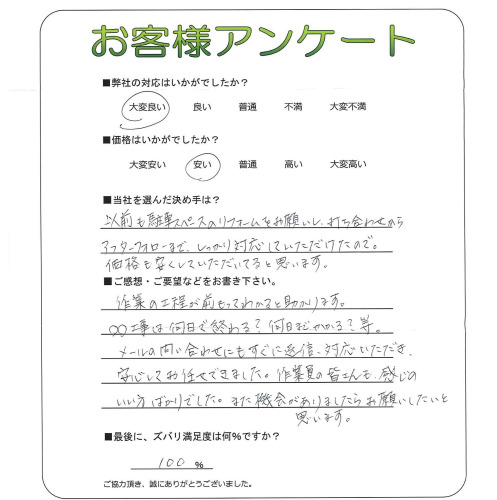 お客様アンケート
■弊社の対応はいかがでしたか？
大変良い 良い 普通 不満 大変不満
■価格はいかがでしたか？
大変安い 安い 普通 高い 大変高い
■当社を選んだ決め手は？
以前も駐車スペースのリフォームをお願いし、打ち合わせから
アフターフォローまで、しっかり対応していただけたので。
価格も安くしていただいてると思います。
■ご感想・ご要望などをお書き下さい。
作業の工程が前もってわかると助かります。
○○工事は何日で終わる？何日までかかる？等。
メールの問い合わせにもすぐに返信、対応いただき、
安心してお任せできました。作業員の皆さんも、感じの
いい方ばかりでした。また機会がありましたらお願いしたいと
思います。
■最後に、ズバリ満足度は何%ですか？
100 %
ご協力頂き、誠にありがとうございました。